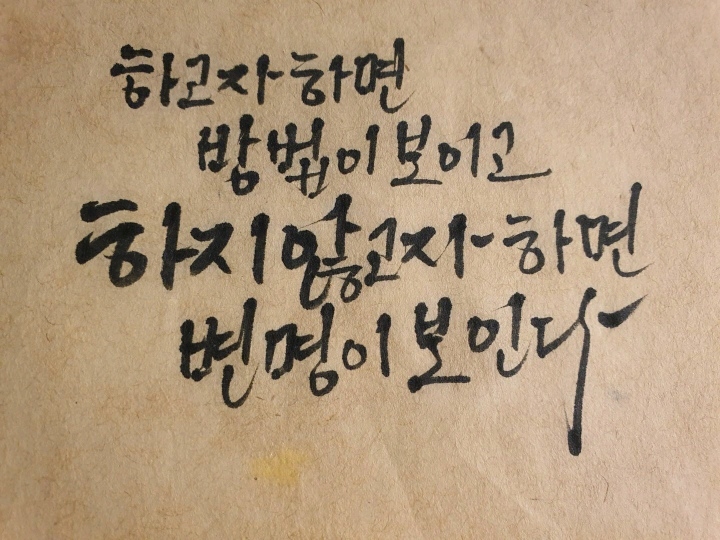 하고자 하면
방법이 보이고
하지 않고자 하면
변명이 보인다